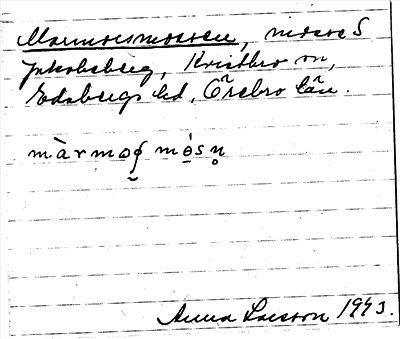 Marmorsmossen, mosse S
Jakobsberg, Kvistbro sn,
Edsbergs hd, Örebro län.
Anna Larsson 1943.